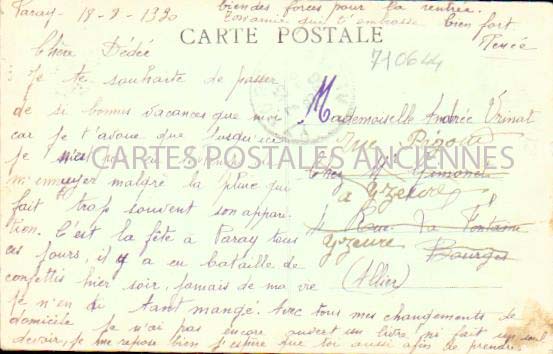 Paray - 18-8-1930
CARTE POSTALE
710644
Chère Dédée
Je te souhaite de passer
de si bonnes vacances que moi
car je t'avoue que jusqu'ici
je n'ai pas eu
m'ennuyer malgré la pluie qui
fait trop souvent son appari-
tion. C'est la fête à Paray tous
ces jours, il y a eu bataille de
confettis hier soir, jamais de ma vie
je n'en ai tant mangé. Avec tous mes changements de
domicile je n'ai pas encore ouvert un livre, ni fait un seul
devoir, je me repose bien j'espère que toi aussi afin de prendre
bien des forces pour la rentrée.
Ton amie qui t'embrasse bien fort
Renée
Mademoiselle Andrée Vrinat
Rue
Chez Mr
à Yzeure
4 Rue La Fontaine
Yzeure
Bourges
(Allier)
CARTES POSTALES ANCIENNES